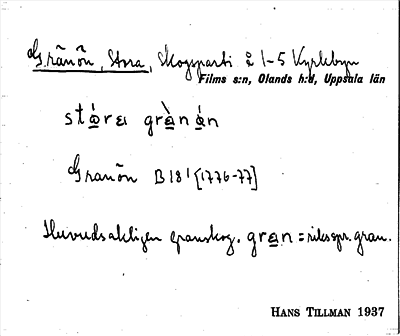 Granön, Stora, Skogsparti å 1-5 Kyrkbyn
Films s:n, Olands h:d, Uppsala län
stǫ́rɛı grạ̀nạ́n
Granön B18¹ [1776-77]
Huvudsakligen granskog. gran = riksspr. gran.
HANS TILLMAN 1937